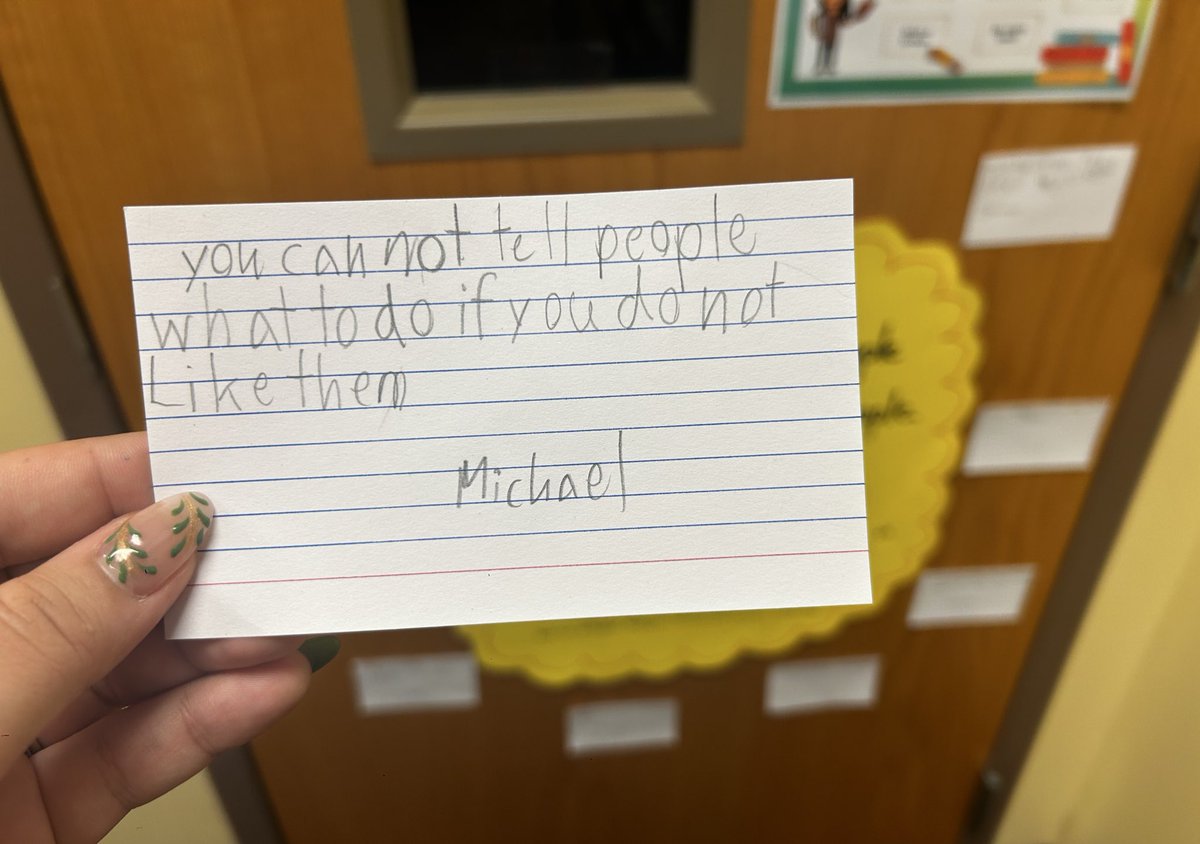 you can not tell people
what to do if you do not
Like them
Michael